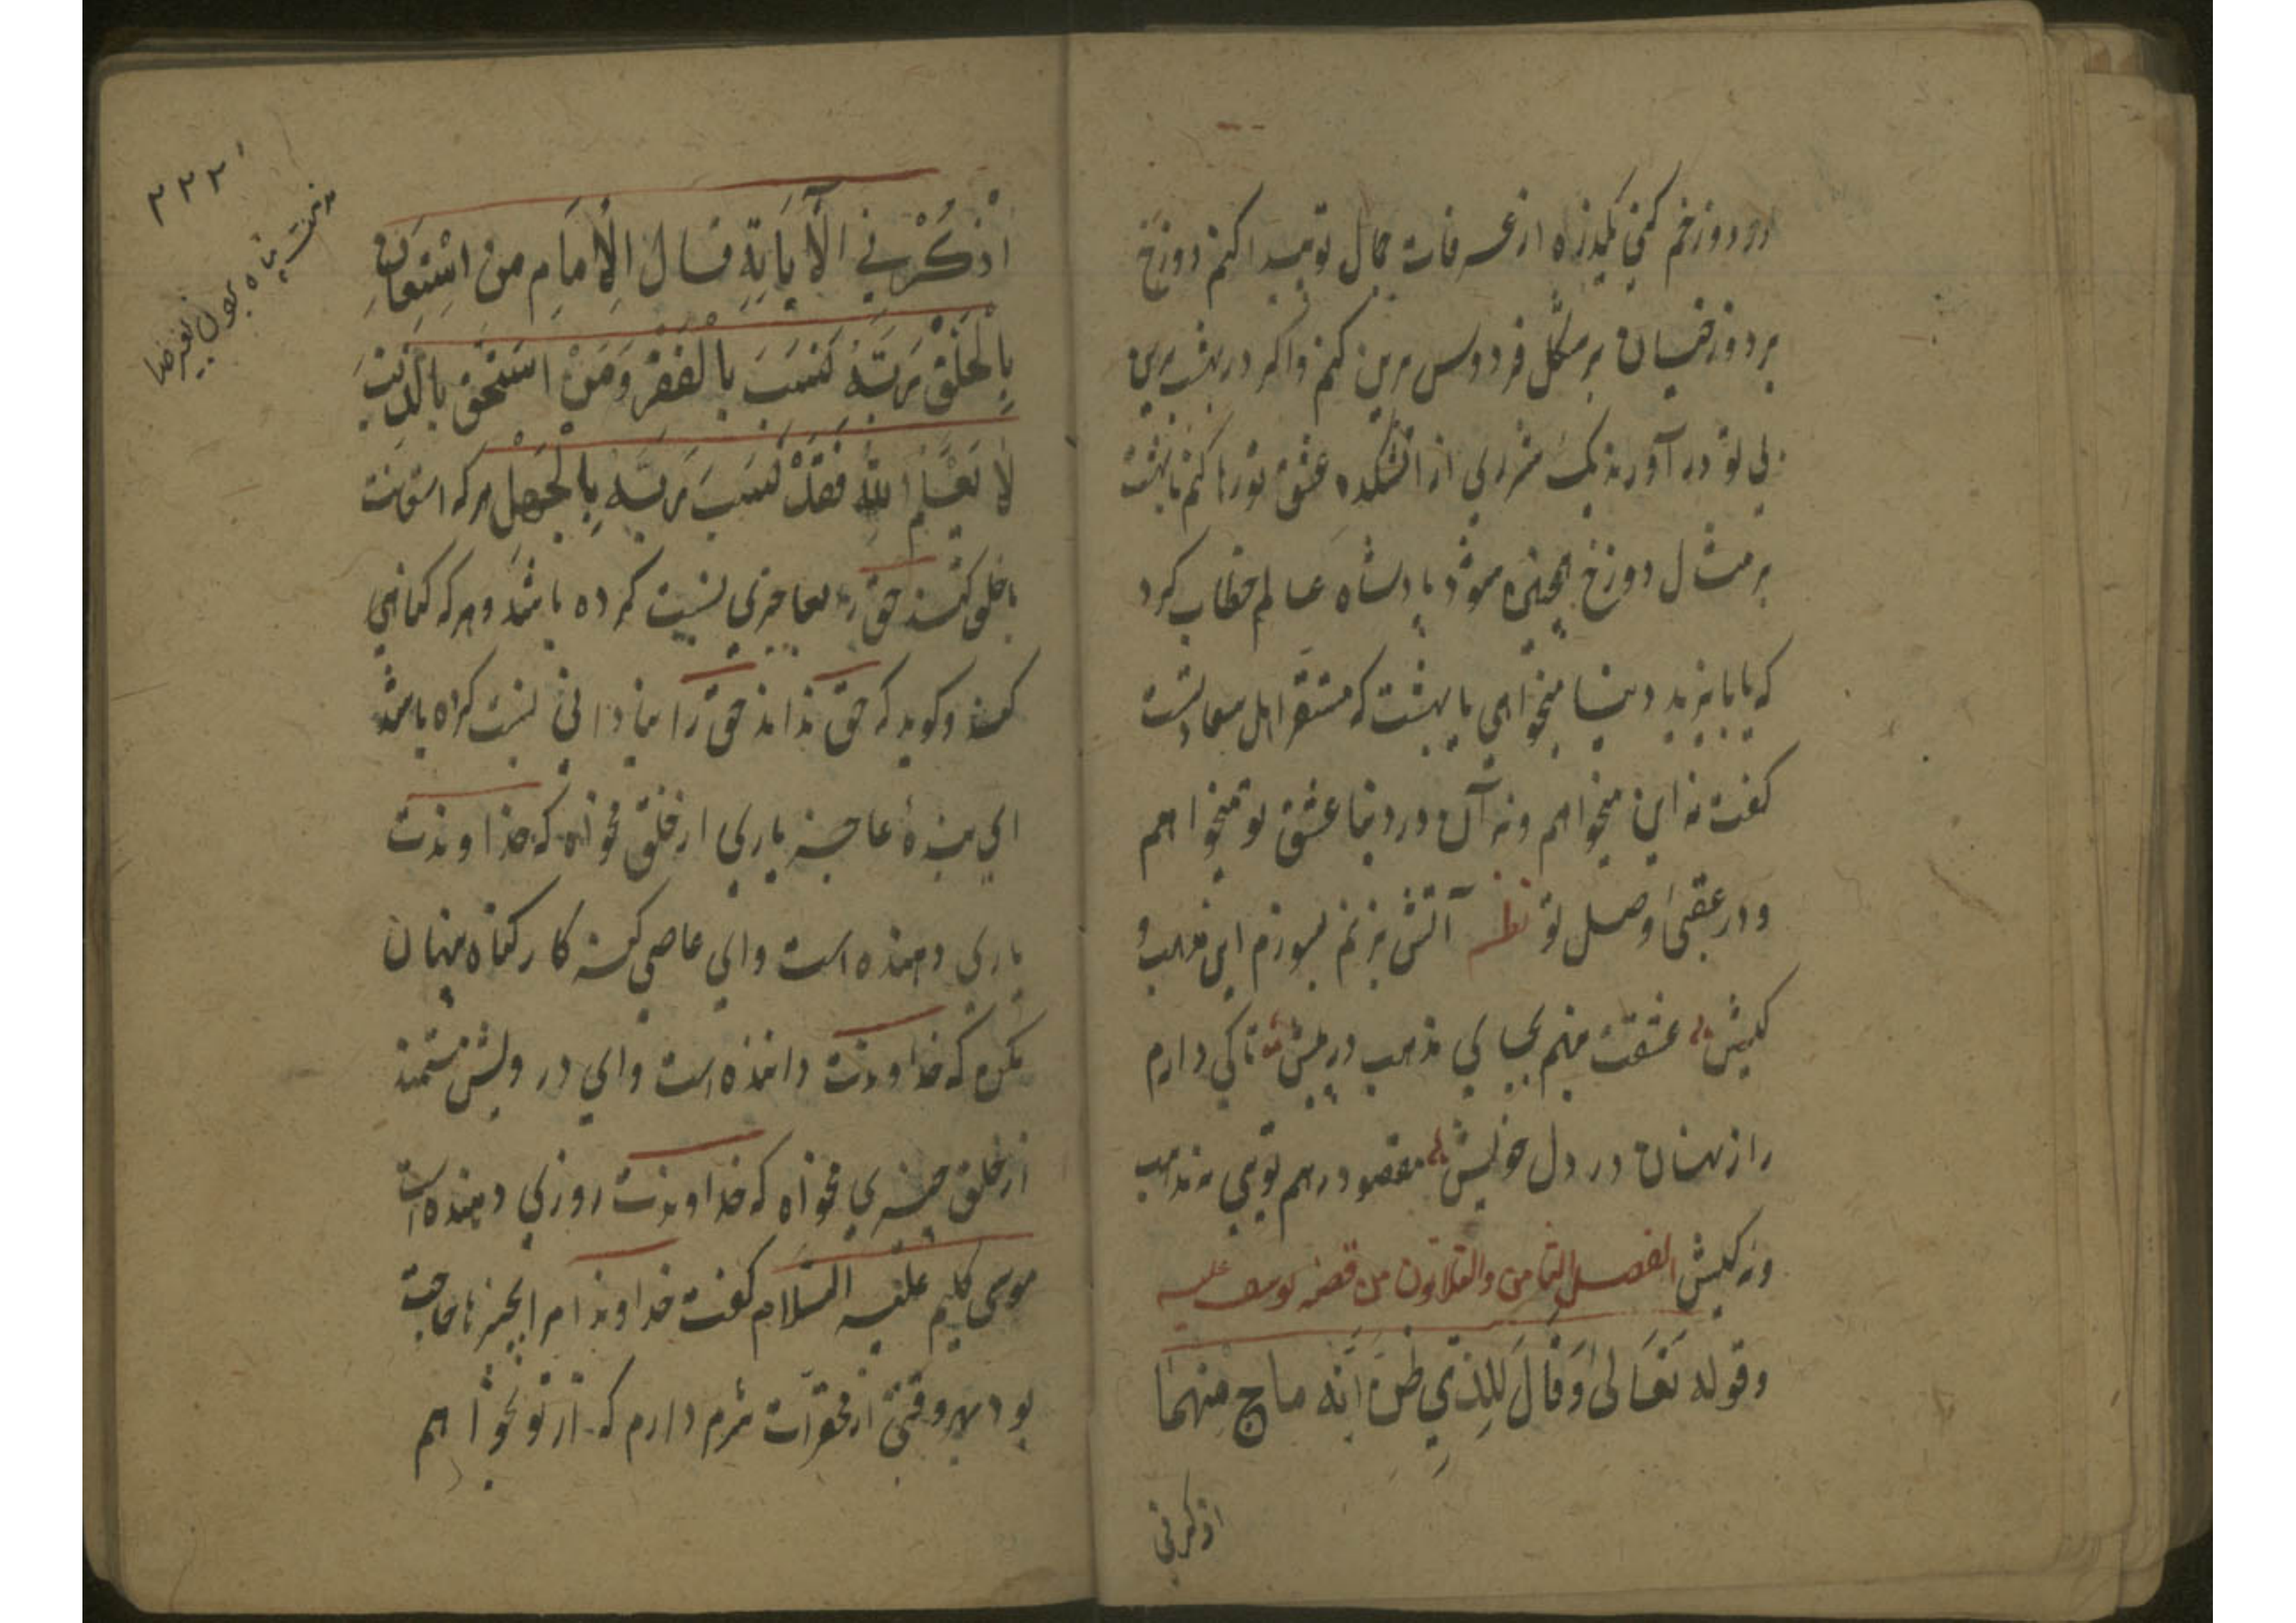 در دوزخم کنی یکذره از عرفات جمال تو پیدا کنم دوزخ
بر دوزخیان بر مثل فردوس برین کنم واکر در بهشت برین
بی تو در آورند یک شرری از اتشکده عشق تو رها کنم تا بهشت
بر مثال دوزخ شود پادشاه عالم خطاب کرد
که یا بایزید دنیا میخواهی یا بهشت که مستقر اهل سعادتست
کفت نه این میخواهم ونه آن در دنیا عشق تو میخواهم
ودر عقبی وصل تو نظم آتش بزنم بسوزم این مذهب و
کیش عشقت بنهم بجای مذهب در پیش تا کی دارم
راز نهان در دل خویش مقصود رهم تویی نه مذهب
ونه کیش الفصل الثامن والثلاثون من قصه یوسف علیه
وقوله تَعَالىٰ وَقَالَ لِلَّذِي ظَنَّ أَنَّهُ ناج مِنْهُمَا
اذکرنی
۳۳۲
اُذْكُرْنِي الْآيَايَةِ قَالَ الْإِمَامِ مَنْ اسْتِعَانَ
بِالْخَلْقِ رَبَّهُ نَسَبَ بِالْفَقْرِ وَمَنْ
لَا يَعْلَمِ اللهُ فَقَدْ نَسَبَ رَبَّهُ بِالْجَهْلِ هر که استعانت
باخلق کند حق را بعاجزی نسبت کرده باشد وهر که کناهی
کند وکوید که حق نداند حق را بنادانی نسبت کرده باشد
ای بنده عاجز یاری از خلق مخواه که خداوندت
یاری دهنده است وای عاصی کنه کار کناه پنهان
مکن که خداوندت داننده است وای درویش مستمند
از خلق چیزی مخواه که خداوندت روزی دهنده است
موسی کلیم علیه السلام کفت خداوندا مرا بچیزها حاجت
بود بهر وقتی از محقرات شرم دارم که از تو بخواهم